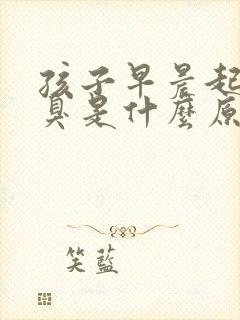 孩子早晨起
臭是什麼原
笑藍